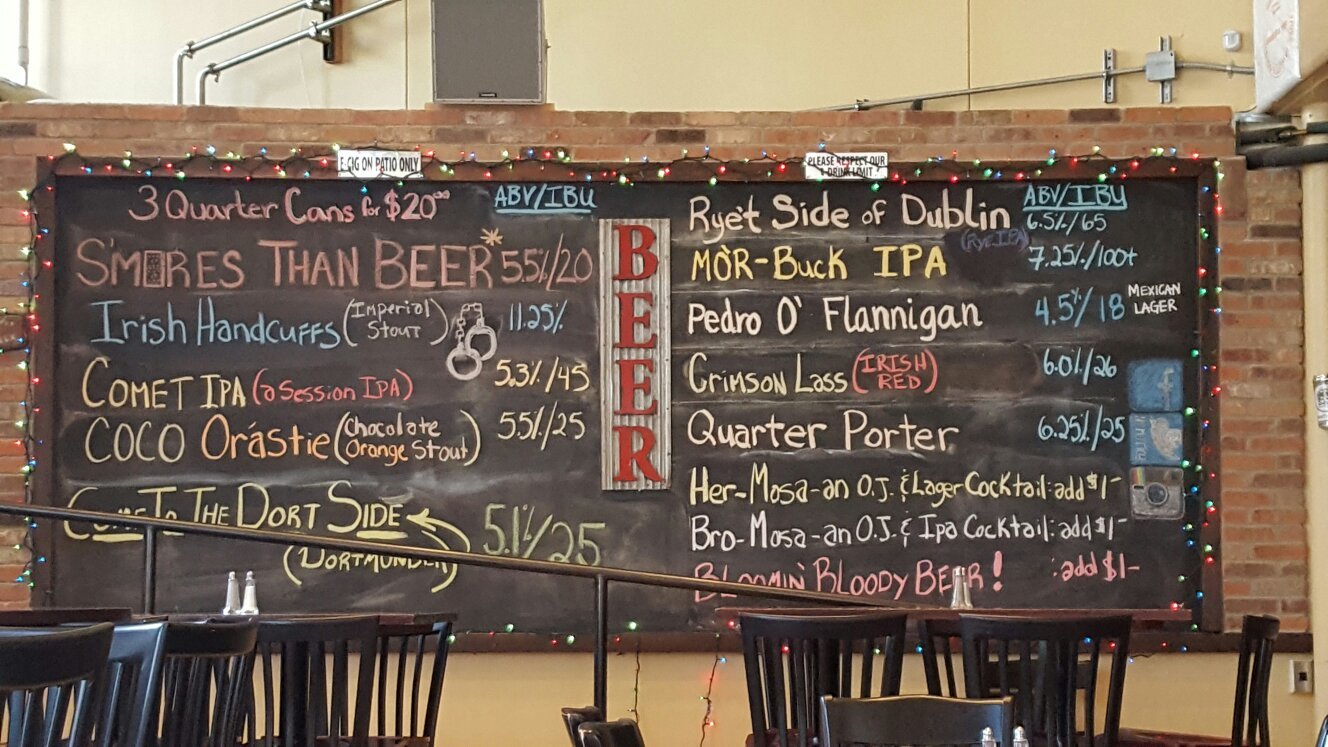 E-CIG ON PATIO ONLY
PLEASE RESPECT OUR
DRINK LIMIT!
3 Quarter Cans for $20⁰⁰
ABV/IBU
S'MORES THAN BEER* 5.5%/20
Irish Handcuffs (Imperial Stout) 11.25%
COMET IPA (a Session IPA) 5.3%/45
COCO Orástie (Chocolate Orange Stout) 5.5%/25
COME TO THE DORT SIDE 5.1%/25
(DORTMUNDER)
BEER
ABV/IBU
Rye't Side of Dublin 6.5%/65
(RYE IPA)
MÒR-Buck IPA 7.25%/100+
Pedro O' Flannigan 4.5%/18 MEXICAN LAGER
Crimson Lass (IRISH RED) 6.0%/26
Quarter Porter 6.25%/25
Her-Mosa-an O.J. & Lager Cocktail: add $1-
Bro-Mosa-an O.J. & Ipa Cocktail: add $1-
Bloomin' Bloody Beer! : add $1-